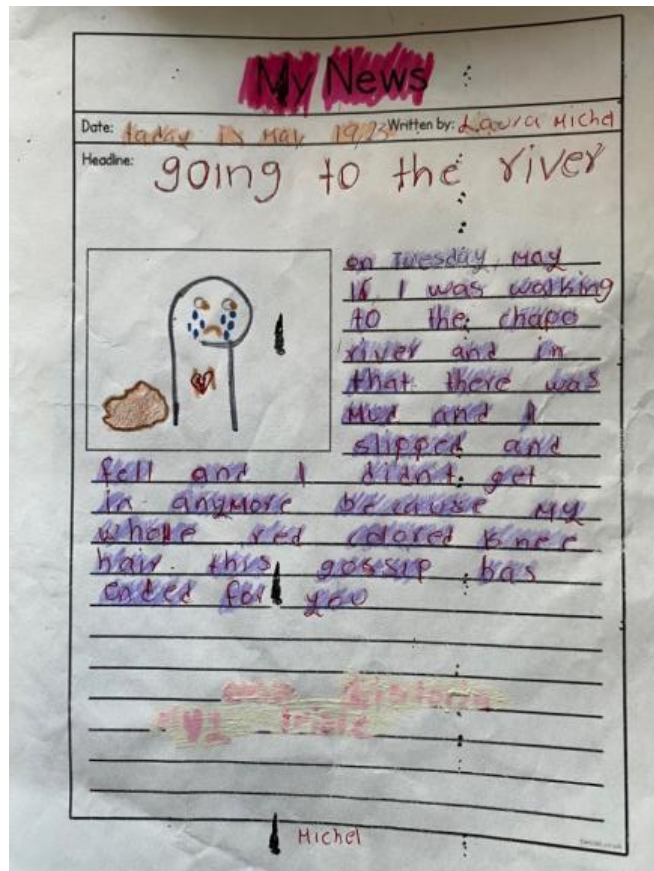 My News
Date: today 18 May 19/23 Written by: Laura Michel
Headline: going to the river
on Tuesday, May
16 I was walking
to the chapo
river and in
that there was
Mud and I
slipped and
fell and I didnt get
in anymore because my
whole red colored knee
hair this gossip has
ended for you
Michel